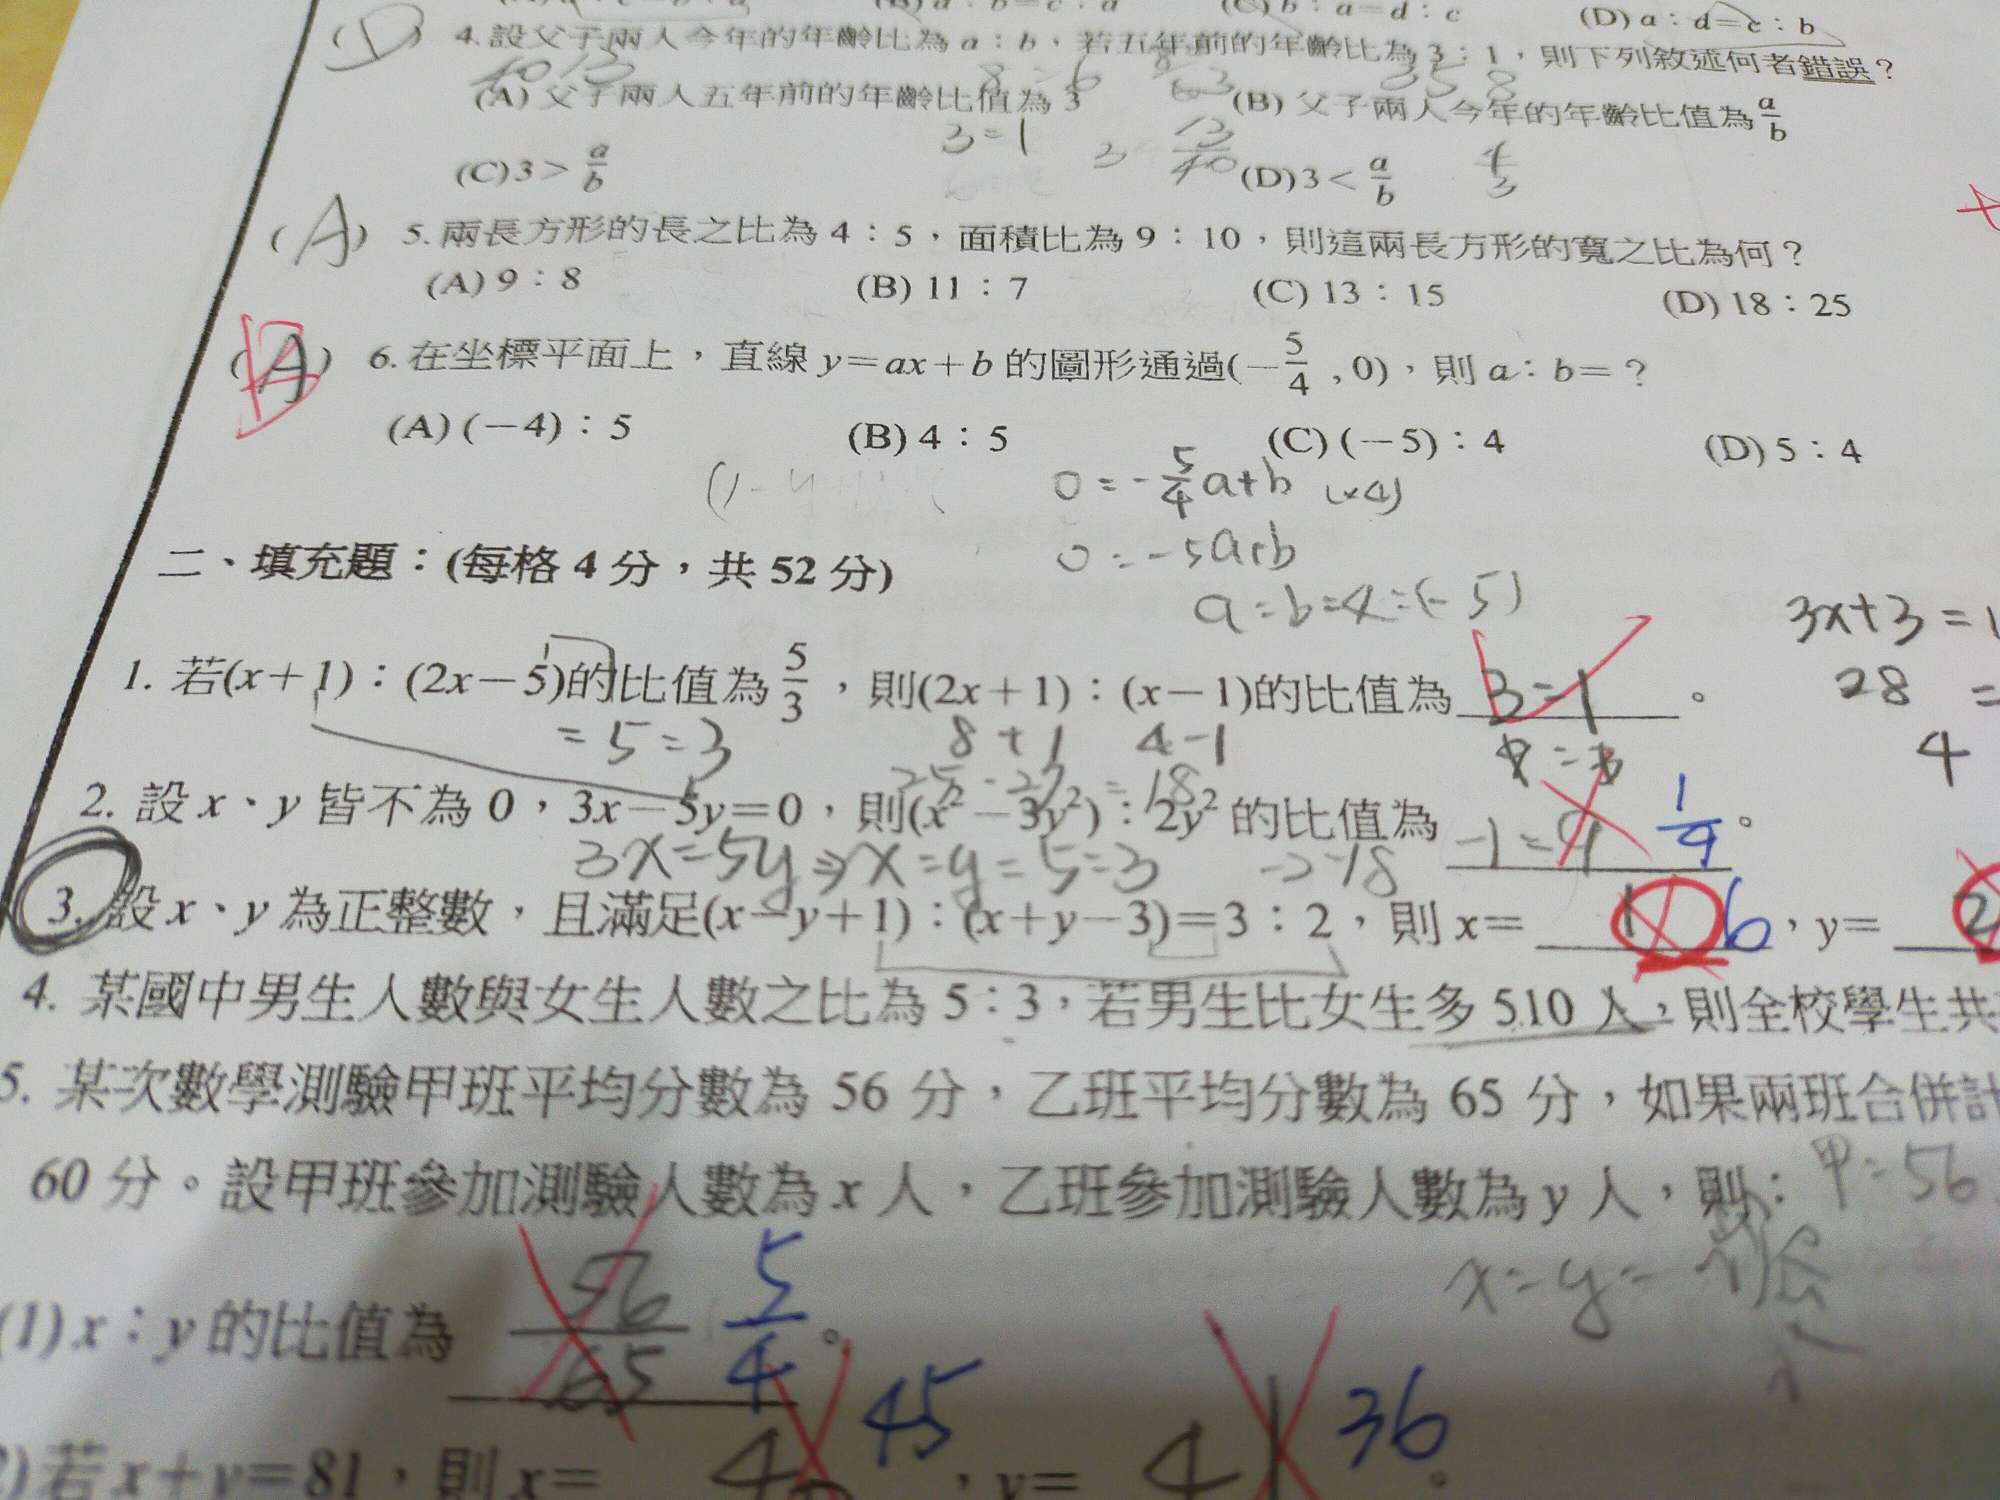 (D) a：d=c：b
(D) 4.設父子兩人今年的年齡比為 a：b，若五年前的年齡比為 3：1，則下列敘述何者錯誤？
(A) 父子兩人五年前的年齡比值為 3 (B) 父子兩人今年的年齡比值為 a/b
3=1
(C) 3＞a/b (D) 3＜a/b
(A) 5. 兩長方形的長之比為 4：5，面積比為 9：10，則這兩長方形的寬之比為何？
(A) 9：8 (B) 11：7 (C) 13：15 (D) 18：25
(A) 6. 在坐標平面上，直線 y=ax+b 的圖形通過(-5/4 , 0)，則 a：b=？
(A) (-4)：5 (B) 4：5 (C) (-5)：4 (D) 5：4
0=-5/4a+b (×4)
0=-5a+b
二、填充題：(每格 4 分，共 52 分)
a=b=4=(-5)
3x+3=1
1. 若(x+1)：(2x-5)的比值為 5/3，則(2x+1)：(x-1)的比值為 3=1。
28 =
=5=3 8+1 4-1
4
25-27=18
2. 設 x、y 皆不為 0，3x-5y=0，則(x²-3y²)：2y²的比值為 -1=9 1/9。
3x=5y⇒x=y=5=3 -2 18
3. 設 x、y 為正整數，且滿足(x-y+1)：(x+y-3)=3：2，則 x= 1 6，y= 2
4. 某國中男生人數與女生人數之比為 5：3，若男生比女生多 510 人，則全校學生共
5. 某次數學測驗甲班平均分數為 56 分，乙班平均分數為 65 分，如果兩班合併計
60 分。設甲班參加測驗人數為 x 人，乙班參加測驗人數為 y 人，則：
甲=56
x=y=
(1) x：y 的比值為 56/65 5/4。
)若 x+y=81，則 x= 45，y= 41 36。